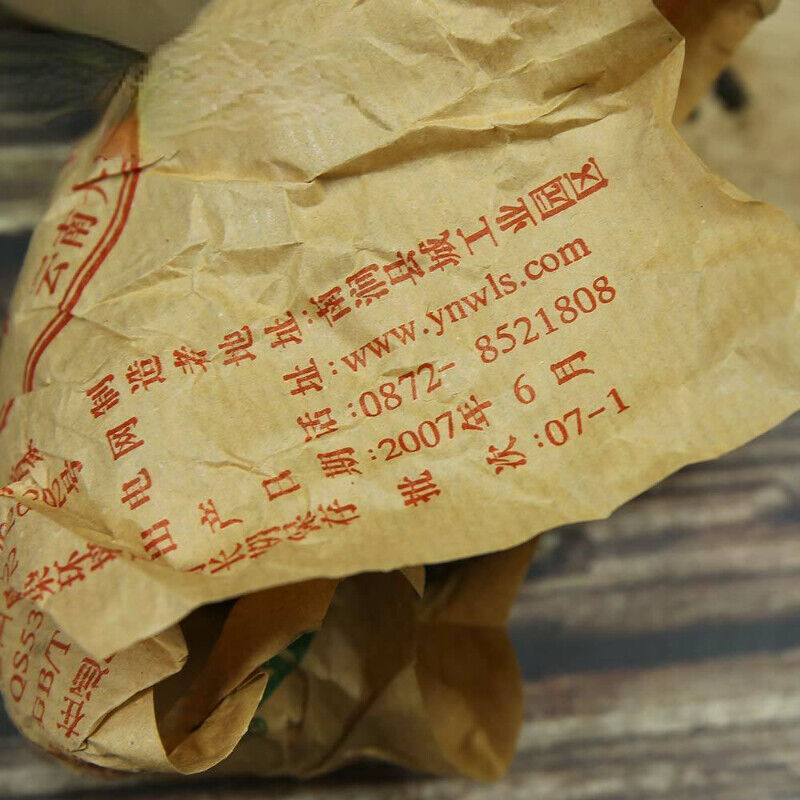 云南
制造者地址:南涧县城工业园区
网 址:www.ynwls.com
电 话:0872-8521808
出产日期:2007年6月
批 次:07-1
长期保存
QS53
GB/T